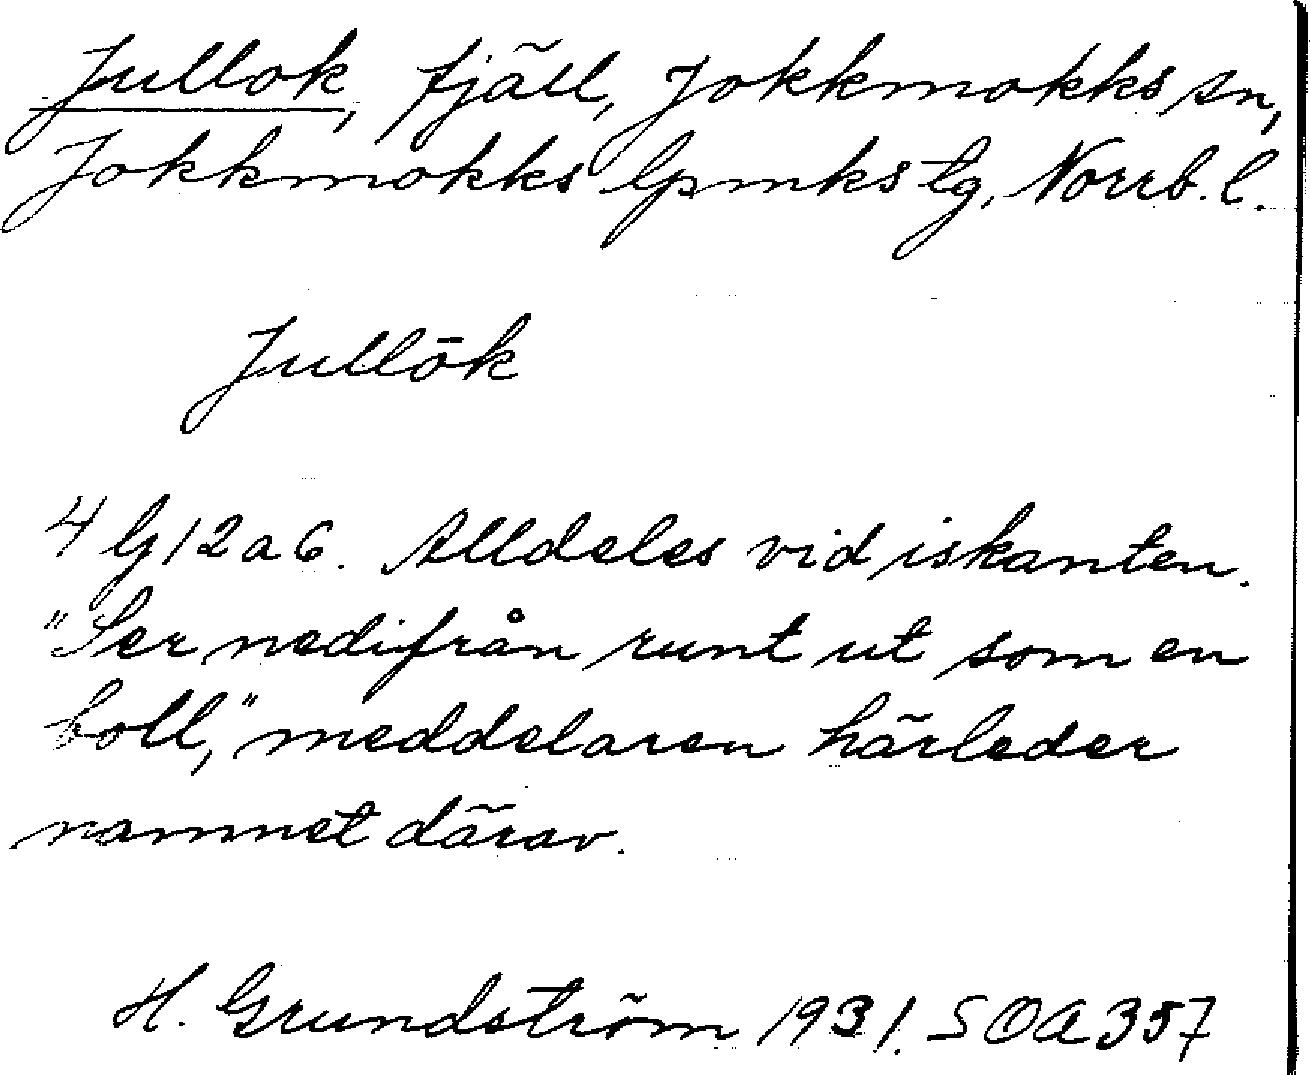 Jullok, fjäll, Jokkmokks sn,
Jokkmokks lpmks tg, Norrb. l.
Jullōk
4 G 12 a 6. Alldeles vid iskanten.
"Ser nedifrån runt ut som en
boll," meddelaren härleder
namnet därav.
H. Grundström 1931. SOA 357